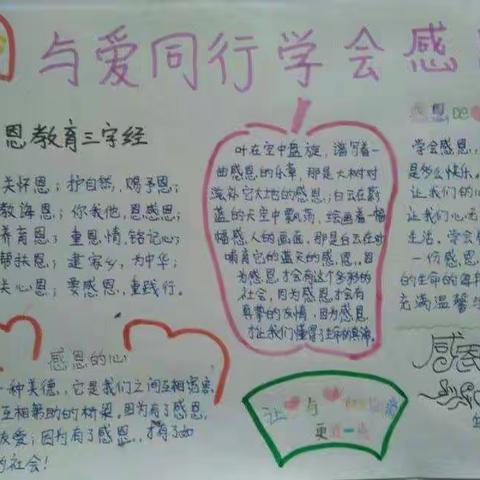 与爱同行学会感
恩教育三字经
关怀恩；护自然，赐予恩；
教诲恩；你我他，恩感恩；
养育恩；重恩情，铭记心；
帮扶恩；建家乡，为中华；
关心恩；要感恩，重践行。
叶在空中盘旋，谱写着一
曲感恩的乐章，那是大树对
滋养它大地的感恩；白云在蔚
蓝的天空中飘荡，绘画着一幅
幅感人的画面，那是白云在对
哺育它的蓝天的感恩。因
为感恩才会有这个多彩的
社会，因为感恩才会有
真挚的友情，因为感恩
才让我们懂得了生命的真谛。
感恩 De
学会感恩，
是多么快乐。
让我们的心
让我们心
生活。学会
一份感恩
的生命的
充满温馨
感恩的心
一种美德，它是我们之间互相
互相帮助的桥梁。因为有了感恩，
友爱；因为有了感恩，才有了如
的社会！
让 与
更 一
感恩